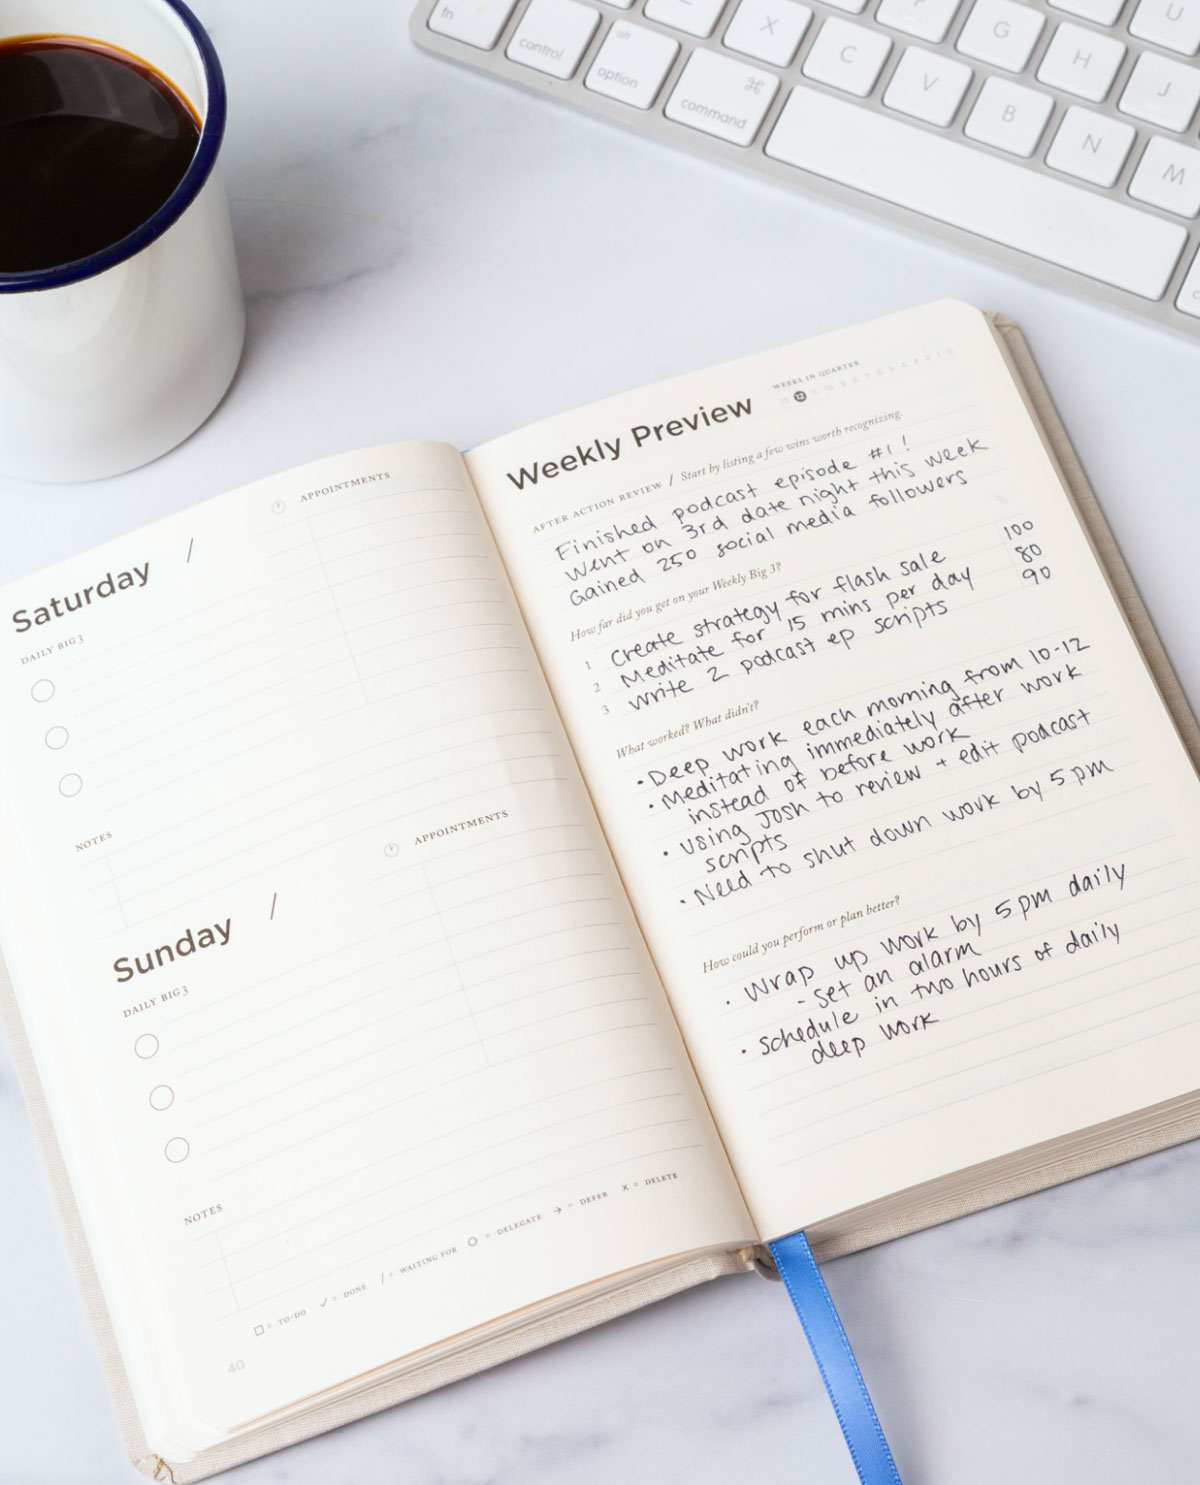 fn
control
alt
option
⌘
command
X
C
V
B
N
M
G
H
J
U
Saturday /
APPOINTMENTS
DAILY BIG 3
NOTES
Sunday /
APPOINTMENTS
DAILY BIG 3
NOTES
= TO-DO ✓ = DONE / = WAITING FOR O = DELEGATE → = DEFER X = DELETE
40
Weekly Preview
WEEKS IN QUARTER
12 11 10 9 8 7 6 5 4 3 2 1 0
AFTER ACTION REVIEW / Start by listing a few wins worth recognizing.
Finished podcast episode #1!
Went on 3rd date night this week
Gained 250 social media followers
%
How far did you get on your Weekly Big 3?
1 Create strategy for flash sale 100
2 Meditate for 15 mins per day 80
3 Write 2 podcast ep scripts 90
What worked? What didn't?
• Deep work each morning from 10-12
• Meditating immediately after work
instead of before work
• Using Josh to review + edit podcast
scripts
• Need to shut down work by 5 pm
How could you perform or plan better?
• Wrap up work by 5pm daily
- Set an alarm
• Schedule in two hours of daily
deep work